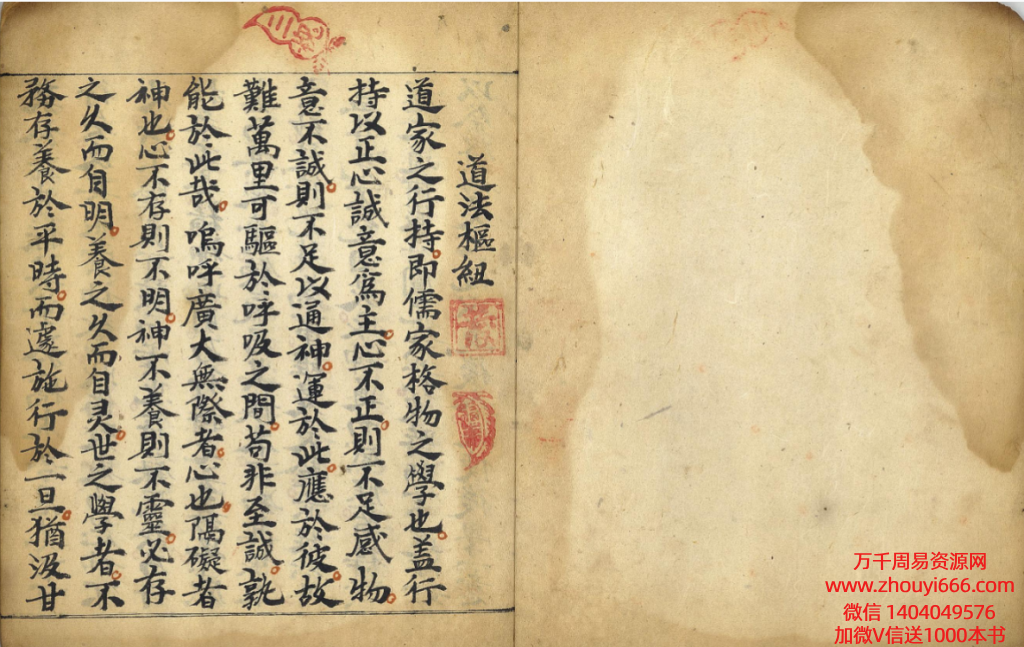 道法樞紐
道家之行持。即儒家格物之學也。盖行
持以正心誠意爲主。心不正。則不足感物。
意不誠。則不足以通神。運於此。應於彼。故
難萬里可驅於呼吸之間。苟非至誠。孰
能於此哉。嗚呼廣大無際者。心也。隔礙者
神也。心不存則不明。神不養則不靈。必存
之久而自明。養之久而自灵。世之學者。不
務存養於平時。而遽施行於一旦。猶汲甘
万千周易资源网
www.zhouyi666.com
微信 1404049576
加微V信送1000本书